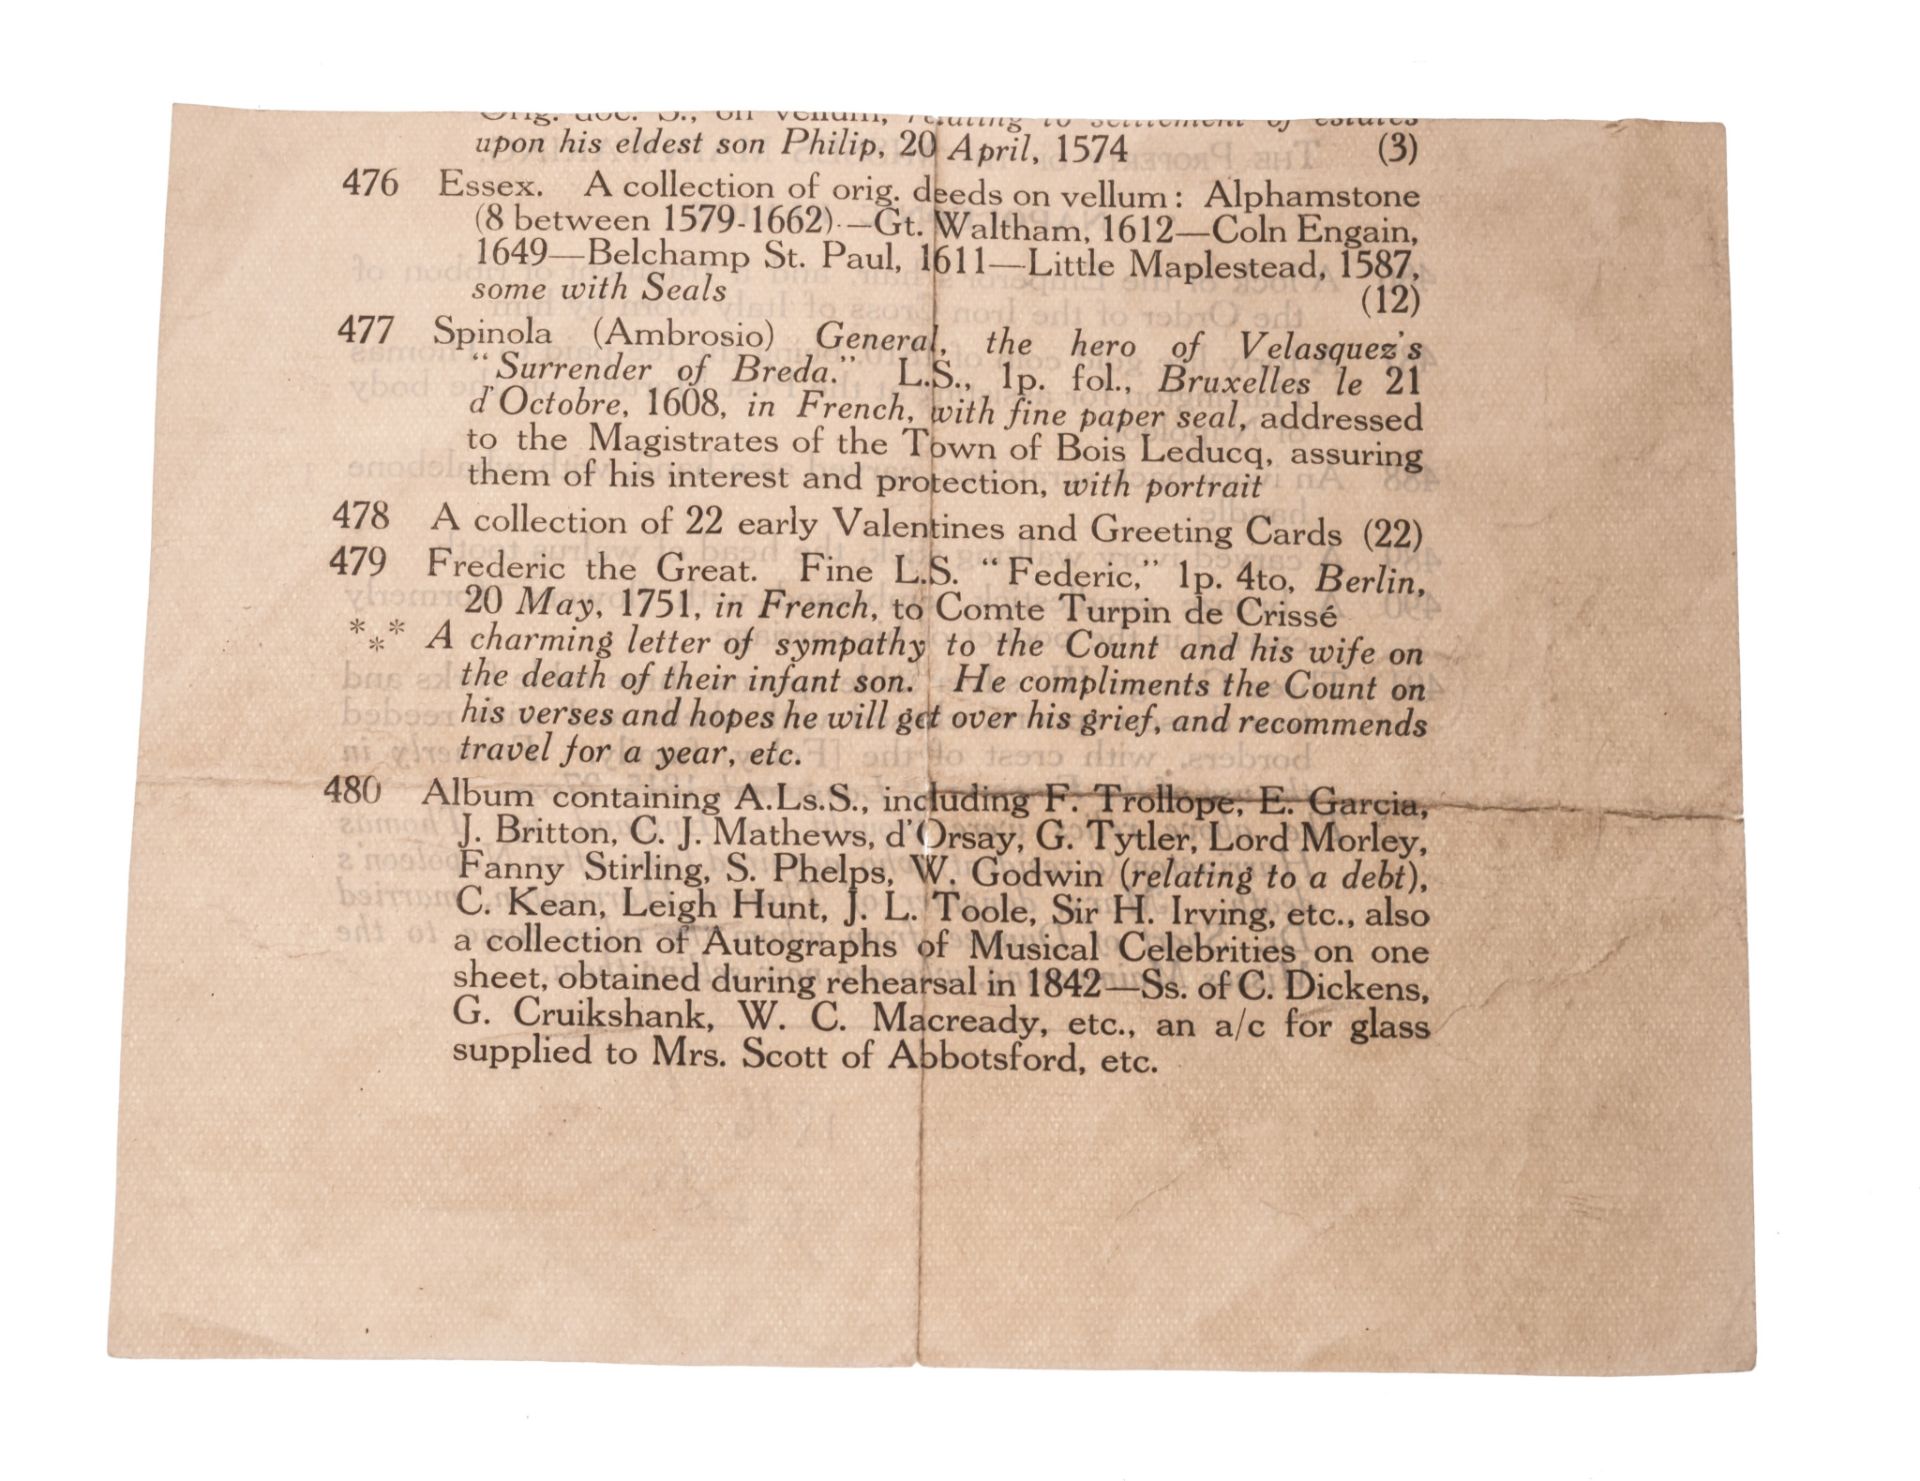 Orig. doc. S., on vellum, relating to settlement of estates
upon his eldest son Philip, 20 April, 1574 (3)
476 Essex. A collection of orig. deeds on vellum: Alphamstone
(8 between 1579-1662)—Gt. Waltham, 1612—Coln Engain,
1649—Belchamp St. Paul, 1611—Little Maplestead, 1587,
some with Seals (12)
477 Spinola (Ambrosio) General, the hero of Velasquez's
"Surrender of Breda." L.S., 1p. fol., Bruxelles le 21
d'Octobre, 1608, in French, with fine paper seal, addressed
to the Magistrates of the Town of Bois Leducq, assuring
them of his interest and protection, with portrait
478 A collection of 22 early Valentines and Greeting Cards (22)
479 Frederic the Great. Fine L.S. "Federic," 1p. 4to, Berlin,
20 May, 1751, in French, to Comte Turpin de Crissé
*** A charming letter of sympathy to the Count and his wife on
the death of their infant son. He compliments the Count on
his verses and hopes he will get over his grief, and recommends
travel for a year, etc.
480 Album containing A.Ls.S., including F. Trollope, E. Garcia,
J. Britton, C. J. Mathews, d'Orsay, G. Tytler, Lord Morley,
Fanny Stirling, S. Phelps, W. Godwin (relating to a debt),
C. Kean, Leigh Hunt, J. L. Toole, Sir H. Irving, etc., also
a collection of Autographs of Musical Celebrities on one
sheet, obtained during rehearsal in 1842—Ss. of C. Dickens,
G. Cruikshank, W. C. Macready, etc., an a/c for glass
supplied to Mrs. Scott of Abbotsford, etc.